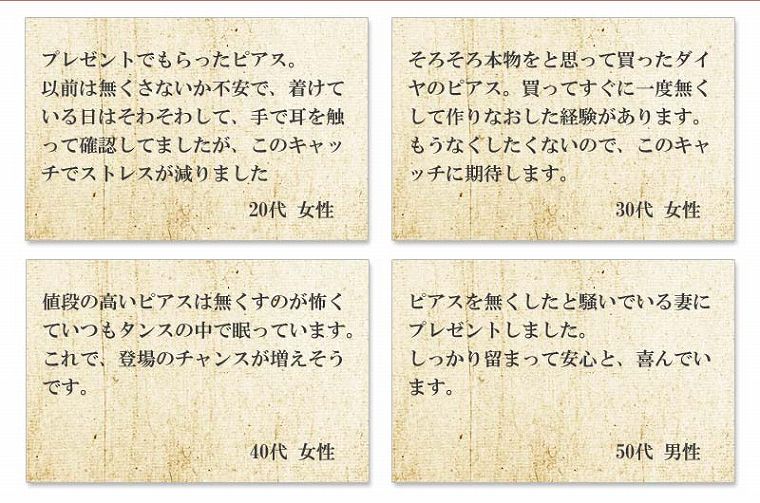 プレゼントでもらったピアス。
以前は無くさないか不安で、着けて
いる日はそわそわして、手で耳を触
って確認してましたが、このキャッ
チでストレスが減りました
20代 女性
そろそろ本物をと思って買ったダイ
ヤのピアス。買ってすぐに一度無く
して作りなおした経験があります。
もうなぐしたくないので、このキャ
ッチに期待します。
30代 女性
値段の高いピアスは無くすのが怖く
ていつもタンスの中で眠っています。
これで、登場のチャンスが増えそう
です。
40代 女性
ピアスを無くしたと騒いでいる妻に
プレゼントしました。
しっかり留まって安心と、喜んでい
ます。
50代 男性